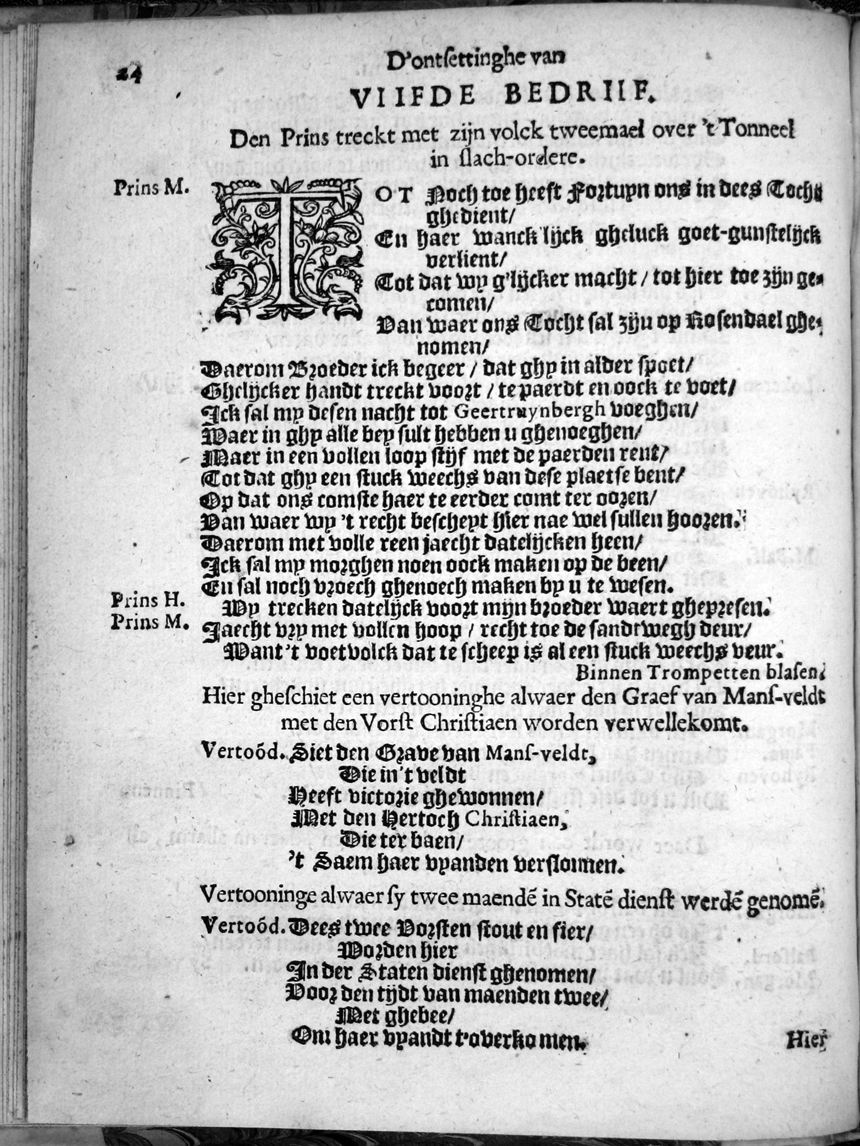 24
D'ontsettinghe van
VIIFDE BEDRIIF.
Den Prins treckt met zijn volck tweemael over 't Tonneel
in slach-ordere.
Prins M. TOT Noch toe heeft Fortuyn ons in dees Tocht
ghedient/
En haer wanck'lijck gheluck goet-gunstelijck
verlient/
Tot dat wy g'lijcker macht / tot hier toe zijn ge-
comen/
Van waer ons Tocht sal zijn op Rosendael ghe-
nomen/
Daerom Broeder ick begeer / dat ghy in alder spoet/
Ghelijcker handt treckt voort / te paerdt en oock te voet/
Ick sal my desen nacht tot Geertruynbergh voeghen/
Waer in ghy alle bey sult hebben u ghenoeghen/
Maer in een vollen loop stijf met de paerden rent/
Tot dat ghy een stuck weechs van dese plaetse bent/
Op dat ons comste haer te eerder comt ter ooren/
Van waer wy 't recht bescheyt hier nae wel sullen hooren.
Daerom met volle reen jaecht datelijcken heen/
Ick sal my morghen noen oock maken op de been/
En sal noch vroech ghenoech maken by u te wesen.
Prins H. Wy trecken datelijck voort mijn broeder waert ghepresen.
Prins M. Jaecht vry met vollen hoop / recht toe de sandtwegh deur/
Want 't voetvolck dat te scheep is al een stuck weechs veur.
Binnen Trompetten blasen.
Hier gheschiet een vertooninghe alwaer den Graef van Mans-veldt
met den Vorst Christiaen worden verwellekomt.
Vertoőd. Siet den Grave van Mans-veldt,
Die in't veldt
Heeft victorie ghewonnen/
Met den Hertoch Christiaen,
Die ter baen/
't Saem haer vyanden verslonnen.
Vertooninge alwaer sy twee maendē in Statē dienst werdē genomē.
Vertoőd. Dees twee Vorsten stout en fier/
Worden hier
In der Staten dienst ghenomen/
Voor den tijdt van maenden twee/
Met ghebee/
Om haer vyandt t'overkomen.
Hier